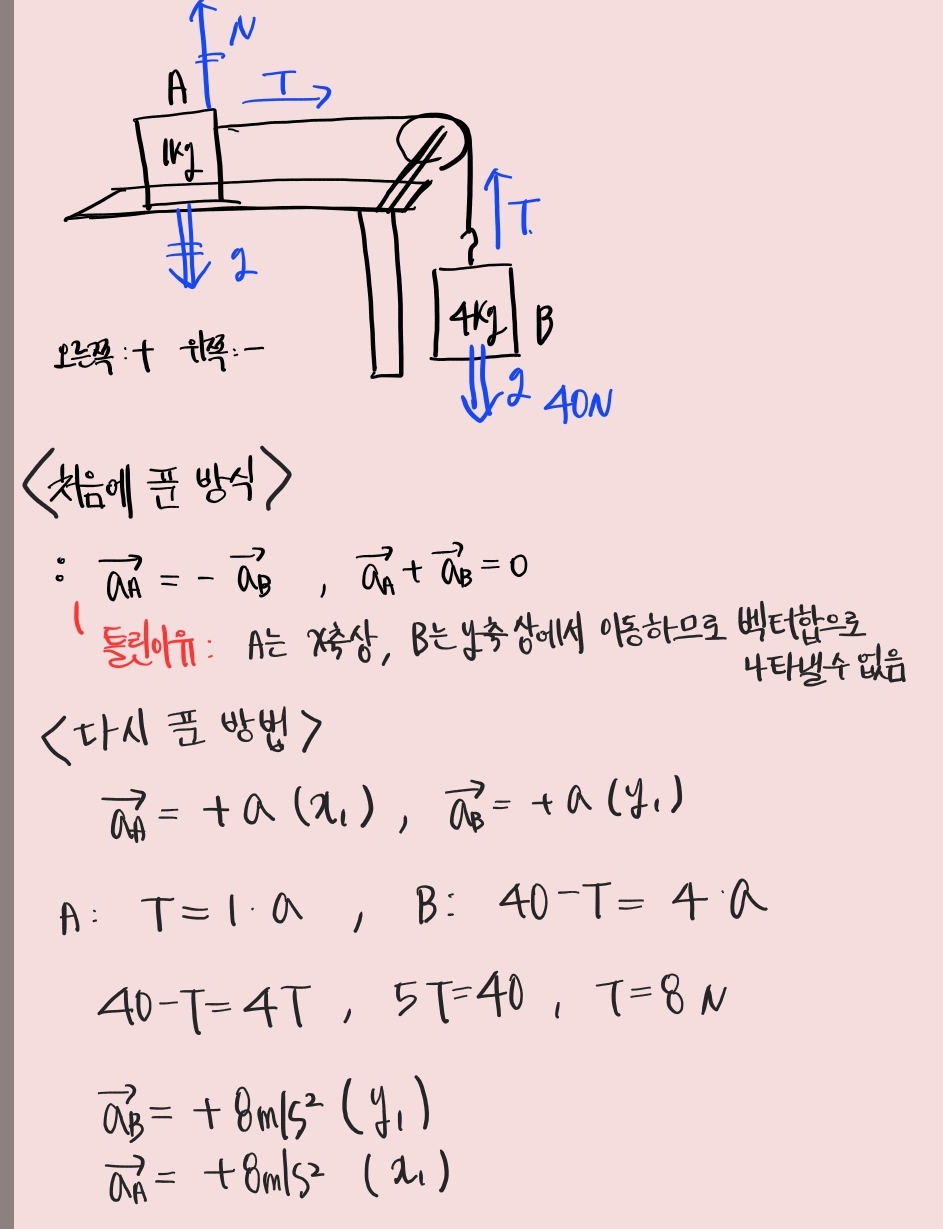 N
A T
1kg
T
g
4kg B
오른쪽:+ 위쪽:-
g 40N
<처음에 푼 방식>
: a⃗A = - a⃗B , a⃗A + a⃗B = 0
틀린이유: A는 x축상, B는 y축 상에서 이동하므로 벡터합으로
나타낼수 없음
<다시 푼 방법>
a⃗A = + a (x₁) , a⃗B = + a (y₁)
A: T = 1·a , B: 40-T = 4·a
40-T=4T , 5T=40 , T=8 N
a⃗B = +8m/s² (y₁)
a⃗A = +8m/s² (x₁)